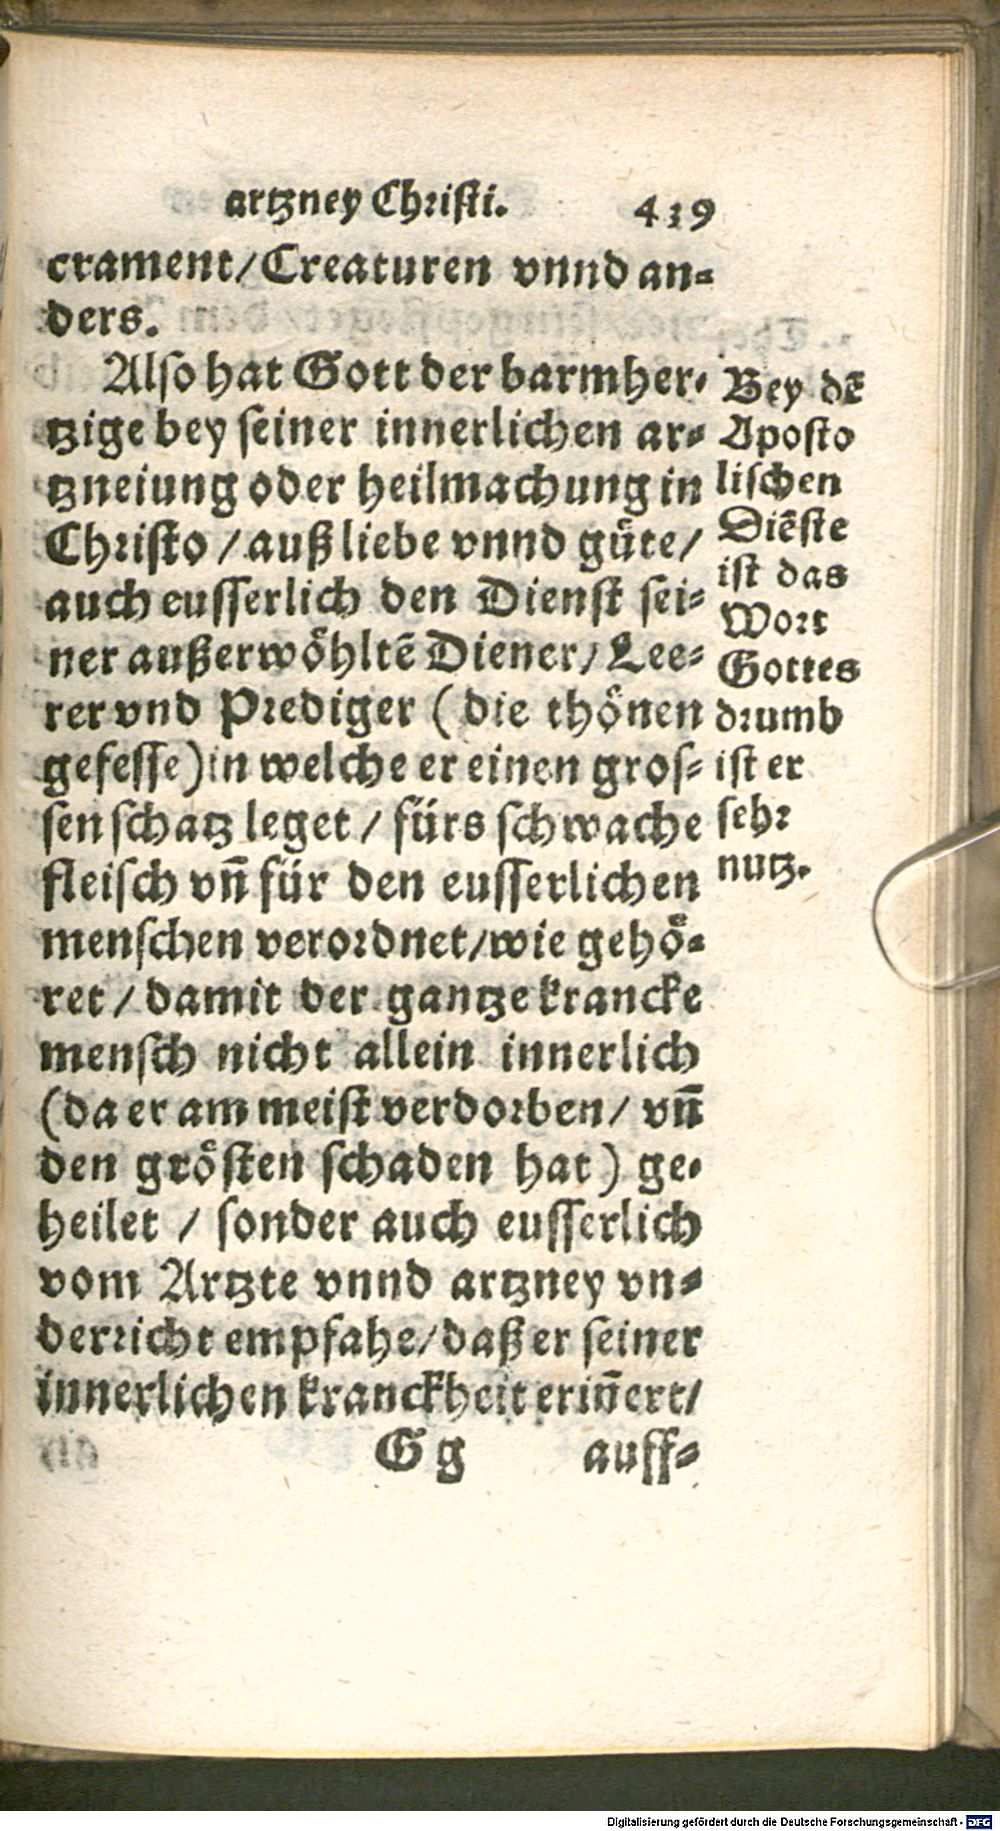 artzney Christi. 439
crament/Creaturen vnnd an-
ders.
Also hat Gott der barmher-
tzige bey seiner innerlichen ar-
tzneiung oder heilmachung in
Christo / auß liebe vnnd guͤte/
auch eusserlich den Dienst sei-
ner außerwoͤhltē Diener/ Lee-
rer vnd Prediger (die thoͤnen
gefesse) in welche er einen gros-
sen schatz leget / fürs schwache
fleisch vn̄ für den eusserlichen
menschen verordnet/wie gehoͤ-
ret / damit der gantze krancke
mensch nicht allein innerlich
(da er am meist verdorben/ vn̄
den groͤsten schaden hat) ge-
heilet / sonder auch eusserlich
vom Artzte vnnd artzney vn-
derricht empfahe/daß er seiner
innerlichen kranckheit erin̄ert/
Gg auff-
Bey dē
Aposto
lischen
Diēste
ist das
Wort
Gottes
drumb
ist er
sehr
nutz.
Digitalisierung gefördert durch die Deutsche Forschungsgemeinschaft - DFG